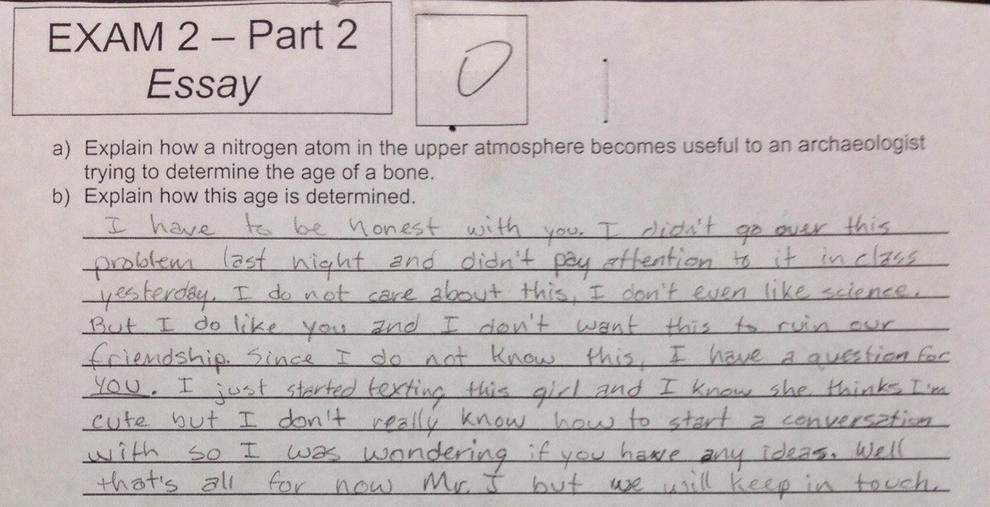 EXAM 2 – Part 2
Essay
0
a) Explain how a nitrogen atom in the upper atmosphere becomes useful to an archaeologist
trying to determine the age of a bone.
b) Explain how this age is determined.
I have to be honest with you. I didn't go over this
problem last night and didn't pay attention to it in class
yesterday. I do not care about this, I don't even like science.
But I do like you and I don't want this to ruin our
friendship. Since I do not know this, I have a question for
you. I just started texting this girl and I know she thinks I'm
cute but I don't really know how to start a conversation
with so I was wondering if you have any ideas. Well
that's all for now Mr. J but we will keep in touch.